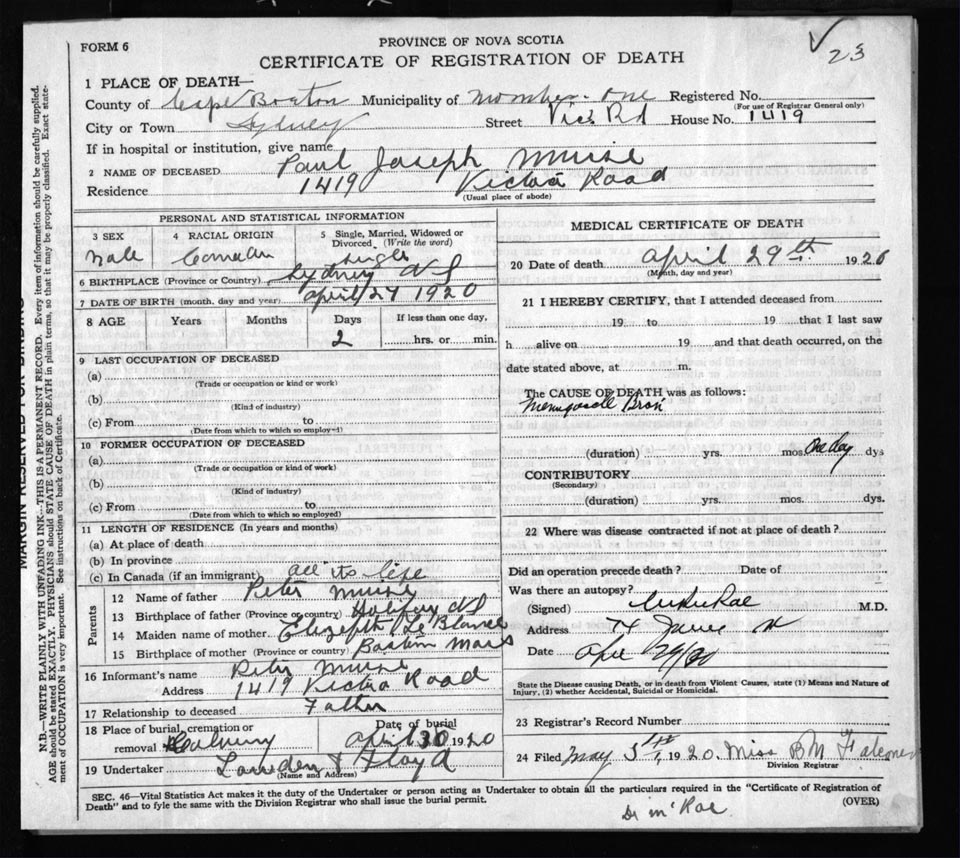 23
FORM 6
PROVINCE OF NOVA SCOTIA
CERTIFICATE OF REGISTRATION OF DEATH
1 PLACE OF DEATH—
County of Cape Breton Municipality of Number-One Registered No.
(For use of Registrar General only)
City or Town Sydney Street Vic. Rd House No. 1419
If in hospital or institution, give name
2 NAME OF DECEASED Paul Joseph Muise
Residence 1419 Victoria Road
(Usual place of abode)
PERSONAL AND STATISTICAL INFORMATION
3 SEX 4 RACIAL ORIGIN 5 Single, Married, Widowed or
Divorced. (Write the word)
Male Canadian Single
6 BIRTHPLACE (Province or Country) Sydney NS
7 DATE OF BIRTH (month, day and year) April 27 1920
8 AGE Years Months Days If less than one day,
2 hrs. or min.
9 LAST OCCUPATION OF DECEASED
(a)
(Trade or occupation or kind or work)
(b)
(Kind of industry)
(c) From to
(Date from which to which so employ-1)
10 FORMER OCCUPATION OF DECEASED
(a)
(Trade or occupation or kind of work)
(b)
(Kind of industry)
(c) From to
(Date from which to which so employed)
11 LENGTH OF RESIDENCE (In years and months)
(a) At place of death
(b) In province
(c) In Canada (if an immigrant) all its life
Parents
12 Name of father Peter Muise
13 Birthplace of father (Province or country) Halifax NS
14 Maiden name of mother Elizabeth Le Blanc
15 Birthplace of mother (Province or country) Boston Mass
16 Informant's name Peter Muise
Address 1419 Victoria Road
17 Relationship to deceased Father
18 Place of burial, cremation or Date of burial
removal Calvary April 30 1920
19 Undertaker Lowden & Floyd
(Name and Address)
MEDICAL CERTIFICATE OF DEATH
20 Date of death April 29th 1920
(Month, day and year)
21 I HEREBY CERTIFY, that I attended deceased from
19 to 19 that I last saw
h alive on 19 and that death occurred, on the
date stated above, at m.
The CAUSE OF DEATH was as follows:
(duration) yrs. mos. One day dys
CONTRIBUTORY
(Secondary)
(duration) yrs. mos. dys.
22 Where was disease contracted if not at place of death?
Did an operation precede death? Date of
Was there an autopsy?
(Signed) McRae M.D.
Address
Date Apr 29/20
State the Disease causing Death, or in death from Violent Causes, state (1) Means and Nature of
Injury, (2) whether Accidental, Suicidal or Homicidal.
23 Registrar's Record Number
24 Filed May 5th, 1920. Miss B M Falconer
Division Registrar
SEC. 46—Vital Statistics Act makes it the duty of the Undertaker or person acting as Undertaker to obtain all the particulars required in the "Certificate of Registration of
Death" and to fyle the same with the Division Registrar who shall issue the burial permit. (OVER)
Dr McRae
MARGIN RESERVED FOR BINDING
N.B.—WRITE PLAINLY WITH UNFADING INK—THIS IS A PERMANENT RECORD. Every item of information should be carefully supplied.
AGE should be stated EXACTLY. PHYSICIANS should STATE CAUSE OF DEATH in plain terms, so that it may be properly classified. Exact state-
ment of OCCUPATION is very important. See instructions on back of Certificate.